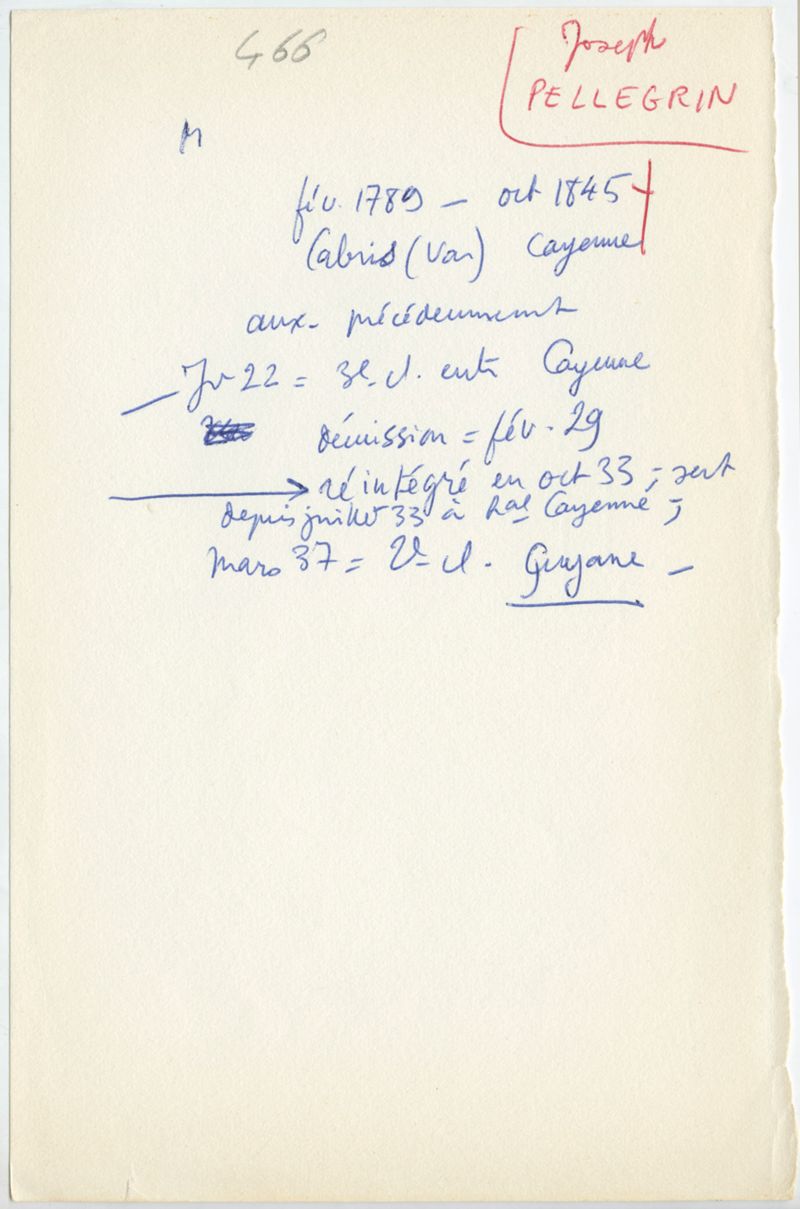 466
Joseph
PELLEGRIN
M
fév. 1789 – oct 1845 †
Cabris (Var) Cayenne
aux. précédemment
Jv 22 = 3e cl. entr Cayenne
démission = fév. 29
→ réintégré en oct 33 ; sert
depuis juillet 33 à hal Cayenne ;
mars 37 = 2e cl. Guyane –